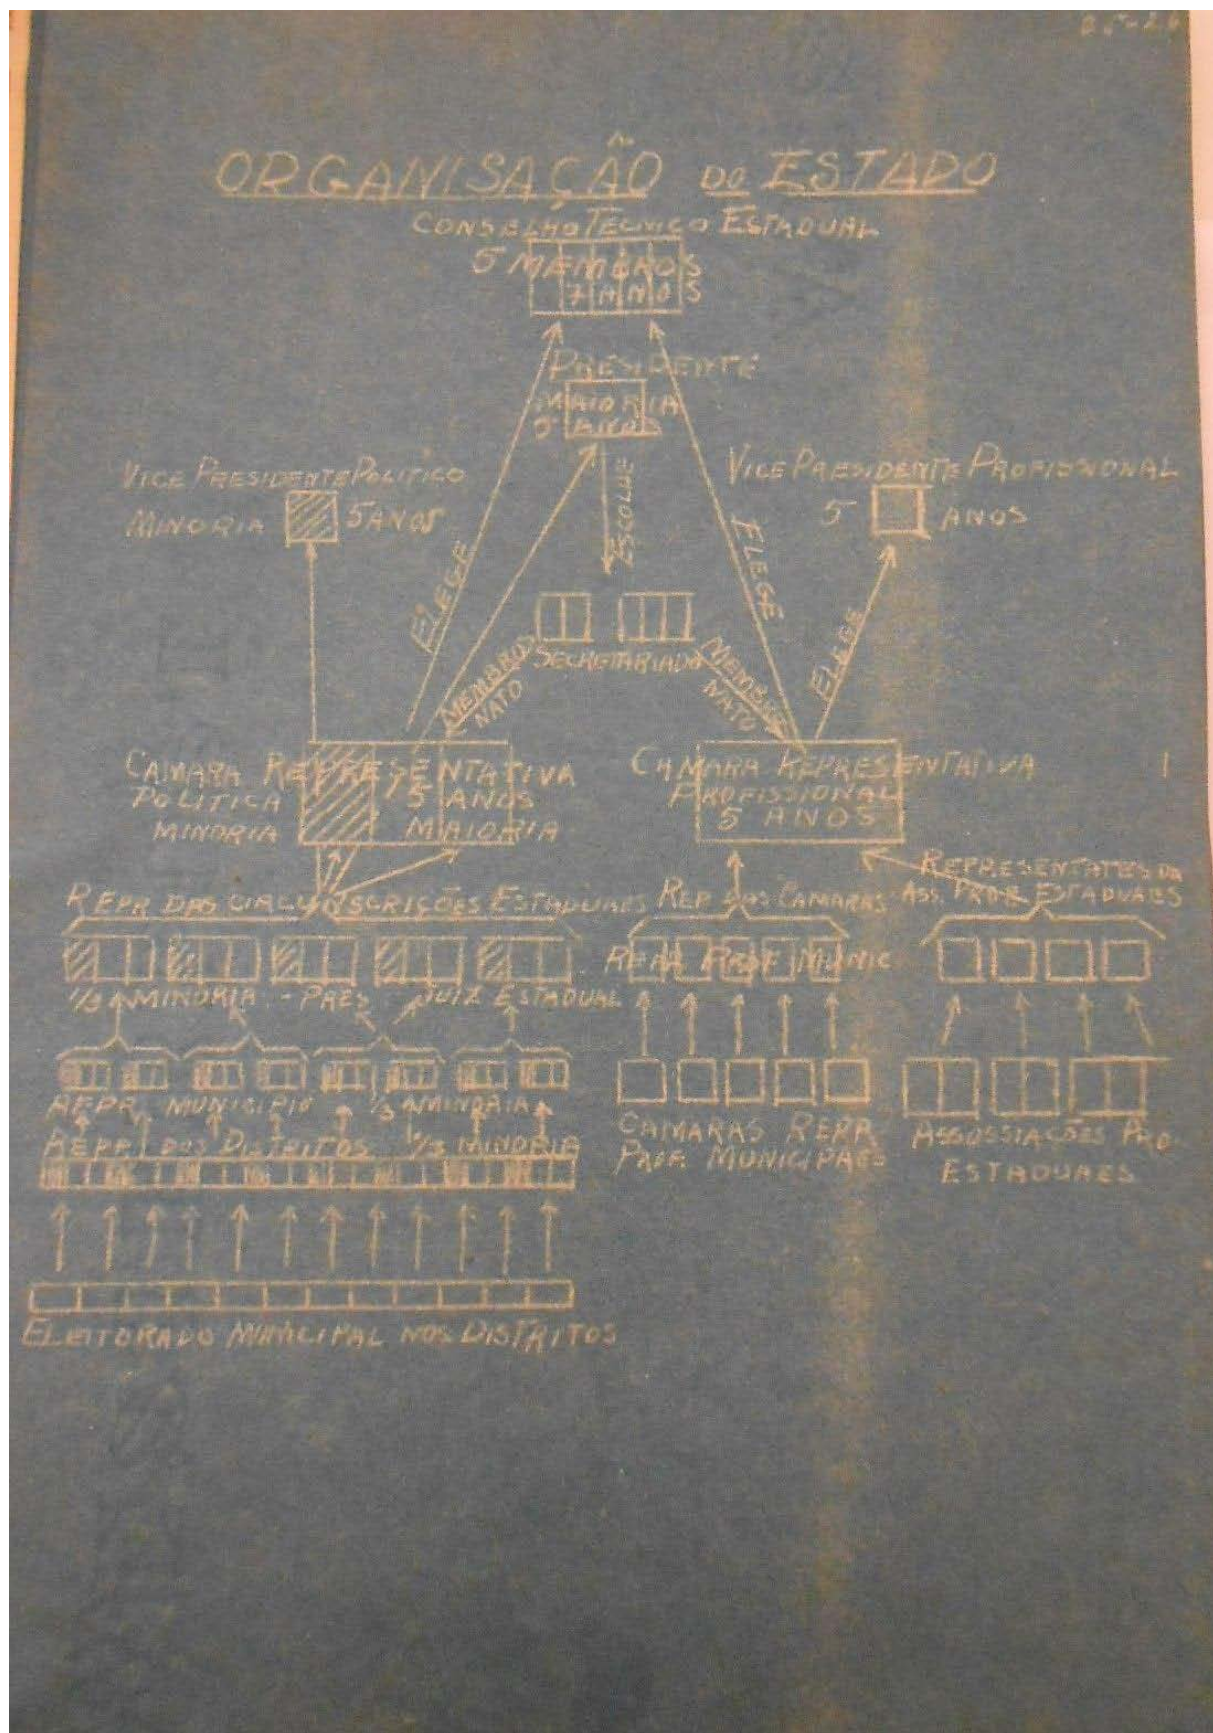 ORGANISAÇÃO DO ESTADO
CONSELHO TECNICO ESTADUAL
5 MEMBROS
7 ANOS
PRESIDENTE
MAIORIA
5 ANOS
VICE PRESIDENTE POLITICO
MINORIA 5 ANOS
VICE PRESIDENTE PROFISSIONAL
5 ANOS
ESCOLHE
ELEGE
ELEGE
ELEGE
SECRETARIADO
MEMBROS
NATO
MEMBRO
NATO
CAMARA REPRESENTATIVA
POLITICA 5 ANOS
MINORIA MAIORIA
CAMARA REPRESENTATIVA
PROFISSIONAL
5 ANOS
REPR DAS CIRCUNSCRIÇÕES ESTADUAES
REP DAS CAMARAS
REPR PROF MUNIC
REPRESENTATES DA
ASS. PROF. ESTADUAES
1/3 MINORIA - PRES JUIZ ESTADUAL
REPR MUNICIPIO 1/3 MINORIA
REPR DOS DISTRITOS 1/3 MINORIA
CAMARAS REPR
PROF. MUNICIPAES
ASSOSSIAÇÕES PRO-
ESTADUAES
ELEITORADO MUNICIPAL NOS DISTRITOS